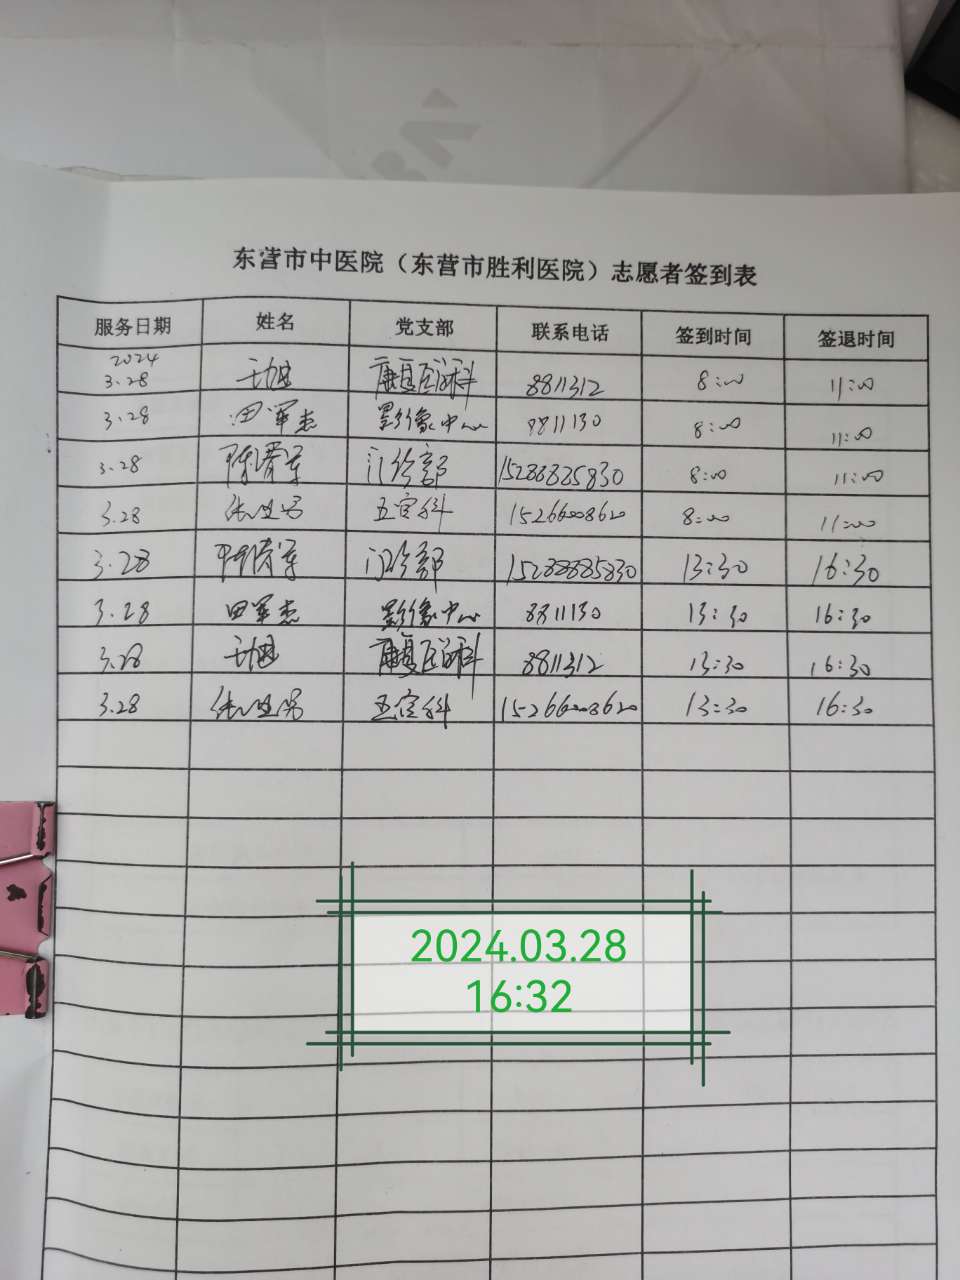 东营市中医院（东营市胜利医院）志愿者签到表
服务日期 姓名 党支部 联系电话 签到时间 签退时间
2024
3.28 康复医学科 8811312 8:00 11:00
3.28 田军杰 影像中心 8811130 8:00 11:00
3.28 门诊部 8:00 11:00
3.28 五官科 15266008620 8:00 11:00
3.28 门诊部 13:30 16:30
3.28 田军杰 影像中心 8811130 13:30 16:30
3.28 康复医学科 8811312 13:30 16:30
3.28 五官科 15266008620 13:30 16:30
2024.03.28
16:32